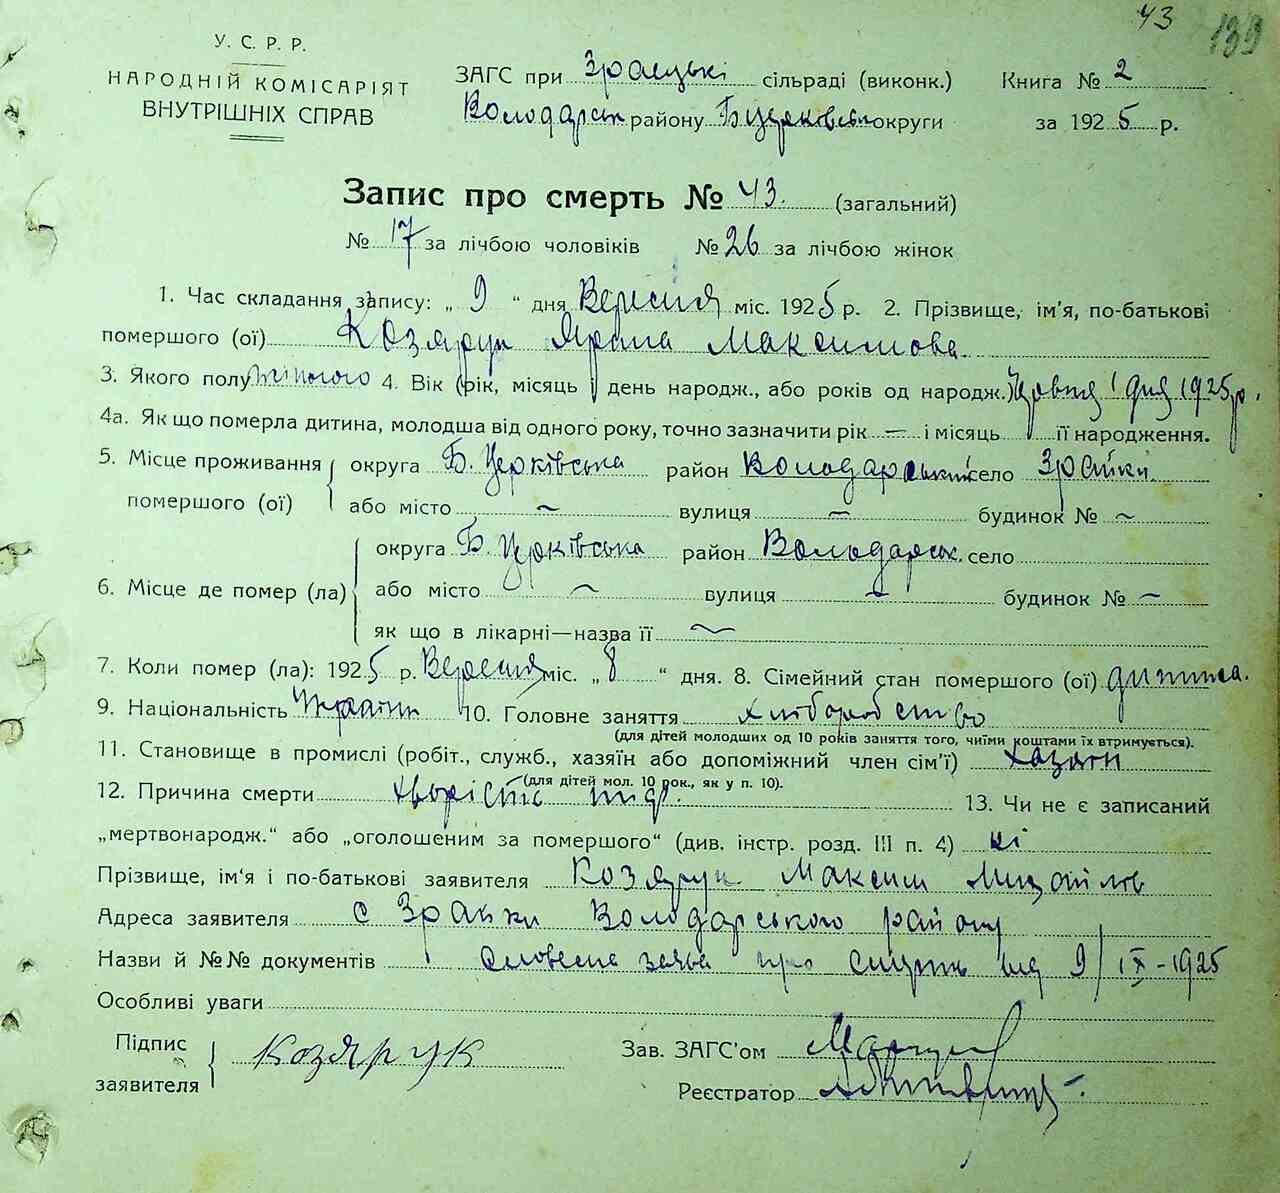 43 139
У. С. Р. Р.
НАРОДНІЙ КОМІСАРІЯТ
ВНУТРІШНІХ СПРАВ
ЗАГС при Зрайцькі сільраді (виконк.) Книга № 2
Володарськ району Б Церковськ округи за 1925 р.
Запис про смерть № 43. (загальний)
№ 17 за лічбою чоловіків № 26 за лічбою жінок
1. Час складання запису: „ 9 “ дня Вересня міс. 1925 р. 2. Прізвище, ім'я, по-батькові
помершого (ої) Козярук Максимова.
3. Якого полу жіночого 4. Вік (рік, місяць і день народж., або років од народж.) 1 дня 1925 р.
4а. Як що померла дитина, молодша від одного року, точно зазначити рік — і місяць її народження.
5. Місце проживання помершого (ої) округа Б. Церківська район Володарський село Зрайки.
або місто ~ вулиця ~ будинок № ~
6. Місце де помер (ла) округа Б. Церківська район Володарськ. село
або місто ~ вулиця ~ будинок № ~
як що в лікарні—назва її ~
7. Коли помер (ла): 1925 р. Вересня міс. „ 8 “ дня. 8. Сімейний стан помершого (ої) дитина.
9. Національність Україн 10. Головне заняття хліборобство
(для дітей молодших од 10 років заняття того, чиїми коштами їх втримується).
11. Становище в промислі (робіт., служб., хазяїн або допоміжний член сім'ї) хазяін
(для дітей мол. 10 рок., як у п. 10).
12. Причина смерти хворість 13. Чи не є записаний
„мертвонародж.“ або „оголошеним за помершого“ (див. інстр. розд. III п. 4) ні
Прізвище, ім'я і по-батькові заявителя Козярук Максим Михайлов
Адреса заявителя с Зрайки Володарського району
Назви й №№ документів Словесна заява про смерть від 9/IX-1925
Особливі уваги
Підпис заявителя Козярук Зав. ЗАГС'ом
Реєстратор